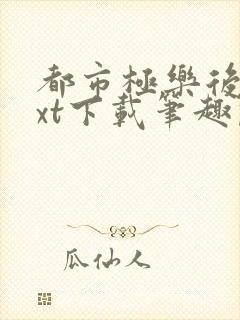 都市極樂後
xt下載筆趣
瓜仙人